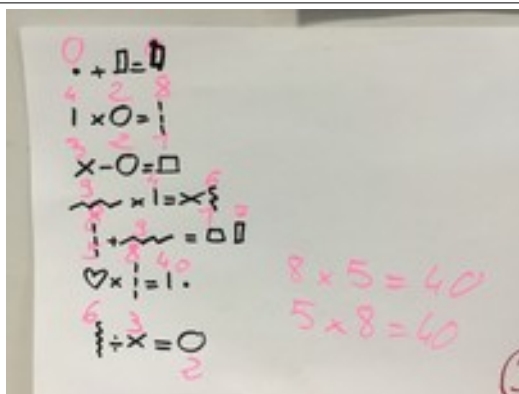 0
· + ▯ = ▯
4 2 8
| × O = ¦
3 2 1
× - O = □
9 4 6
﹏ × | = × ⌇
8 9 1 7
¦ + ﹏ = □ ▯
5 8 4 0
♡ × ¦ = | ·
6 3
⌇ ÷ × = O
2
8 × 5 = 40
5 × 8 = 40